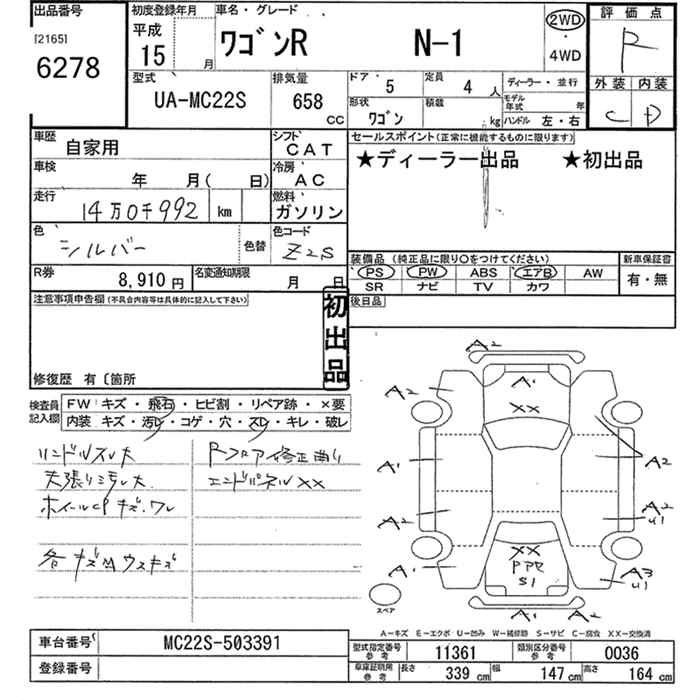 出品番号
[2165]
6278
初度登録年月
平成
15 月
車名・グレード
ワゴンR N-1
2WD
・
4WD
評価点
R
外装 内装
C D
型式
UA-MC22S
排気量
658 CC
ドア 5
定員 4 人
ディーラー・並行
形状
ワゴン
積載 kg
モデル年式 年
ハンドル 左・右
車歴 自家用
シフト CAT
車検 年 月( 日)
冷房 AC
走行 14万0千992 km
燃料 ガソリン
色 シルバー
色替
色コード Z2S
R券 8,910 円
名変通知期限 月 日
セールスポイント(正常に機能するものに限ります)
★ディーラー出品 ★初出品
装備品 (純正品に限り○をつけてください)
新車保証書
PS PW ABS エアB AW
SR ナビ TV カワ
有・無
後日品
注意事項申告欄(不具合内容等は具体的に記入して下さい)
初出品
修復歴 有〔箇所
検査員記入欄
FW キズ・飛石・ヒビ割・リペア跡・×要
内装 キズ・汚レ・コゲ・穴・スレ・キレ・破レ
ハンドルスレ大
天張りミラレ大
ホイールCPキズ、ワレ
各キズMウスキズ
Rフロア修正曲り
エンドパネルXX
A2
A2
A1
A2
XX
A1
A2
A2
A2
U1
A1
XX
PPR
S1
A3
U1
A1
A2
スペア
A-キズ E-エクボ U-凹み W-補修跡 S-サビ C-腐食 XX-交換済
車台番号 MC22S-503391
登録番号
型式指定番号 参考 11361
類別区分番号 参考 0036
車庫証明用 参考
長さ 339 cm
幅 147 cm
高さ 164 cm